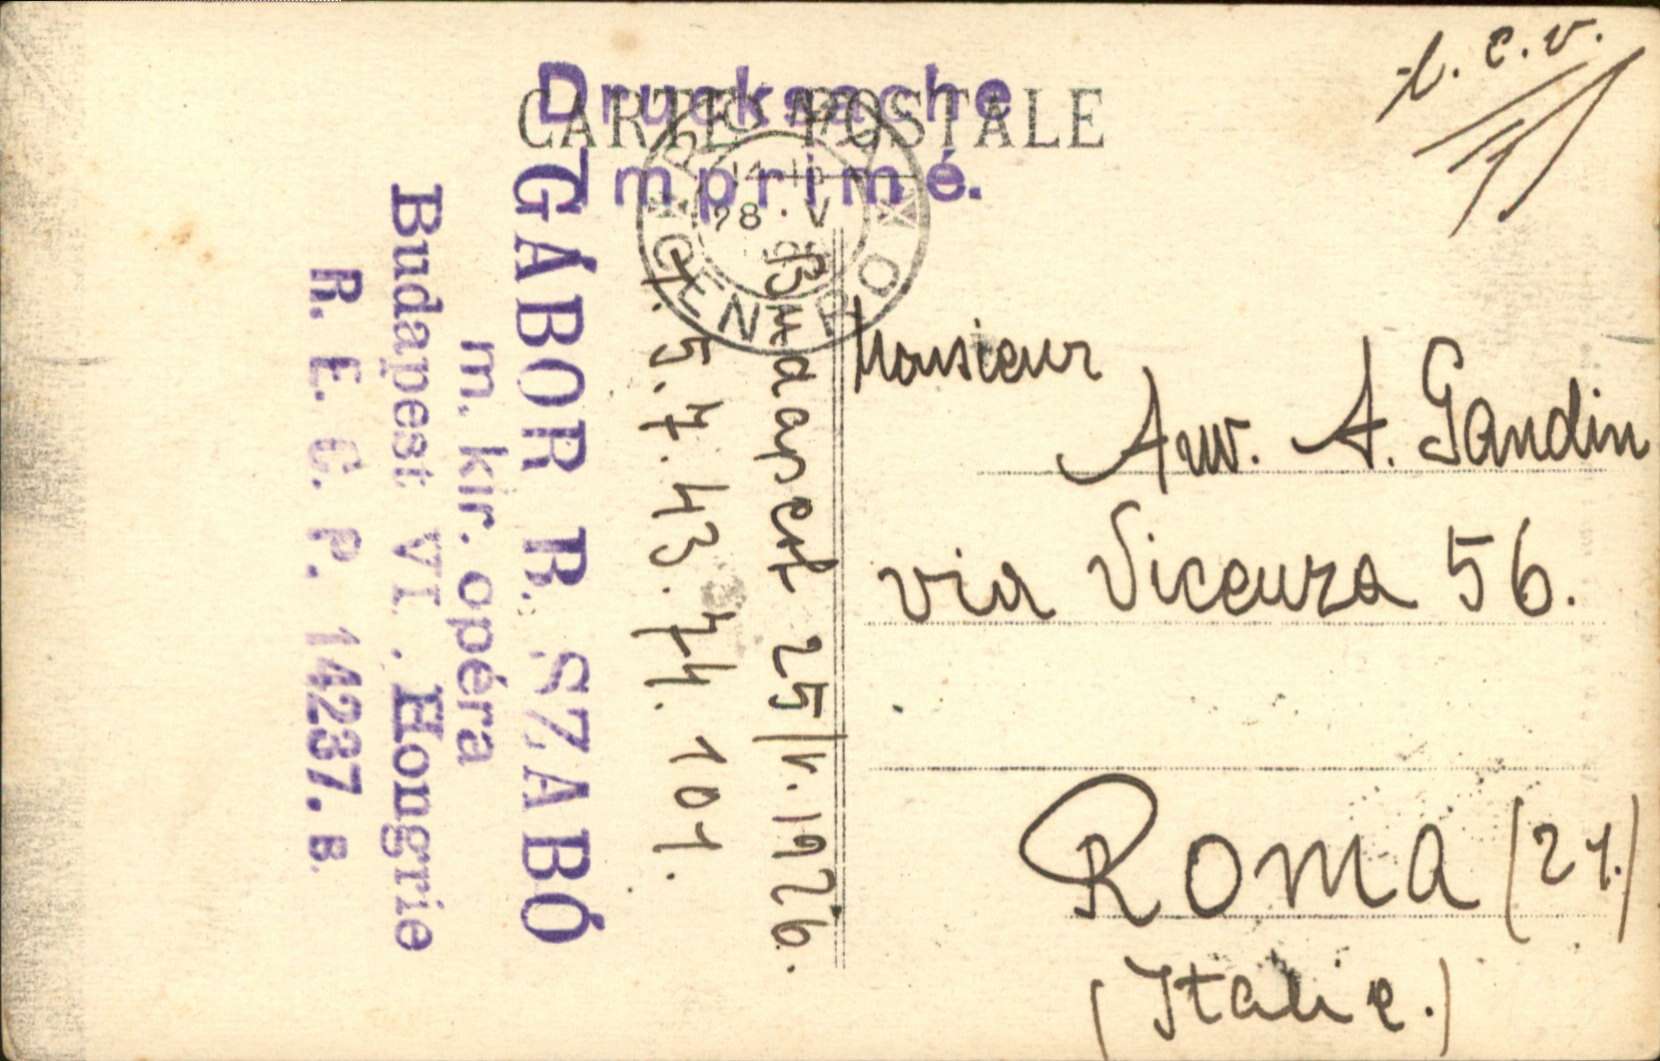 t. c. v.
Drucksache
CARTE POSTALE
Imprimé.
ROMA
CENTRO
28 · V
Budapest 25/V. 1926.
1. 5. 7. 43. 74. 101.
GÁBOR R. SZABÓ
m. kir. opéra
Budapest VI. Hongrie
R. E. C. P. 14237. B
Monsieur
Avv. A. Gandin
via Vicenza 56.
ROMA (21.)
(Italie.)